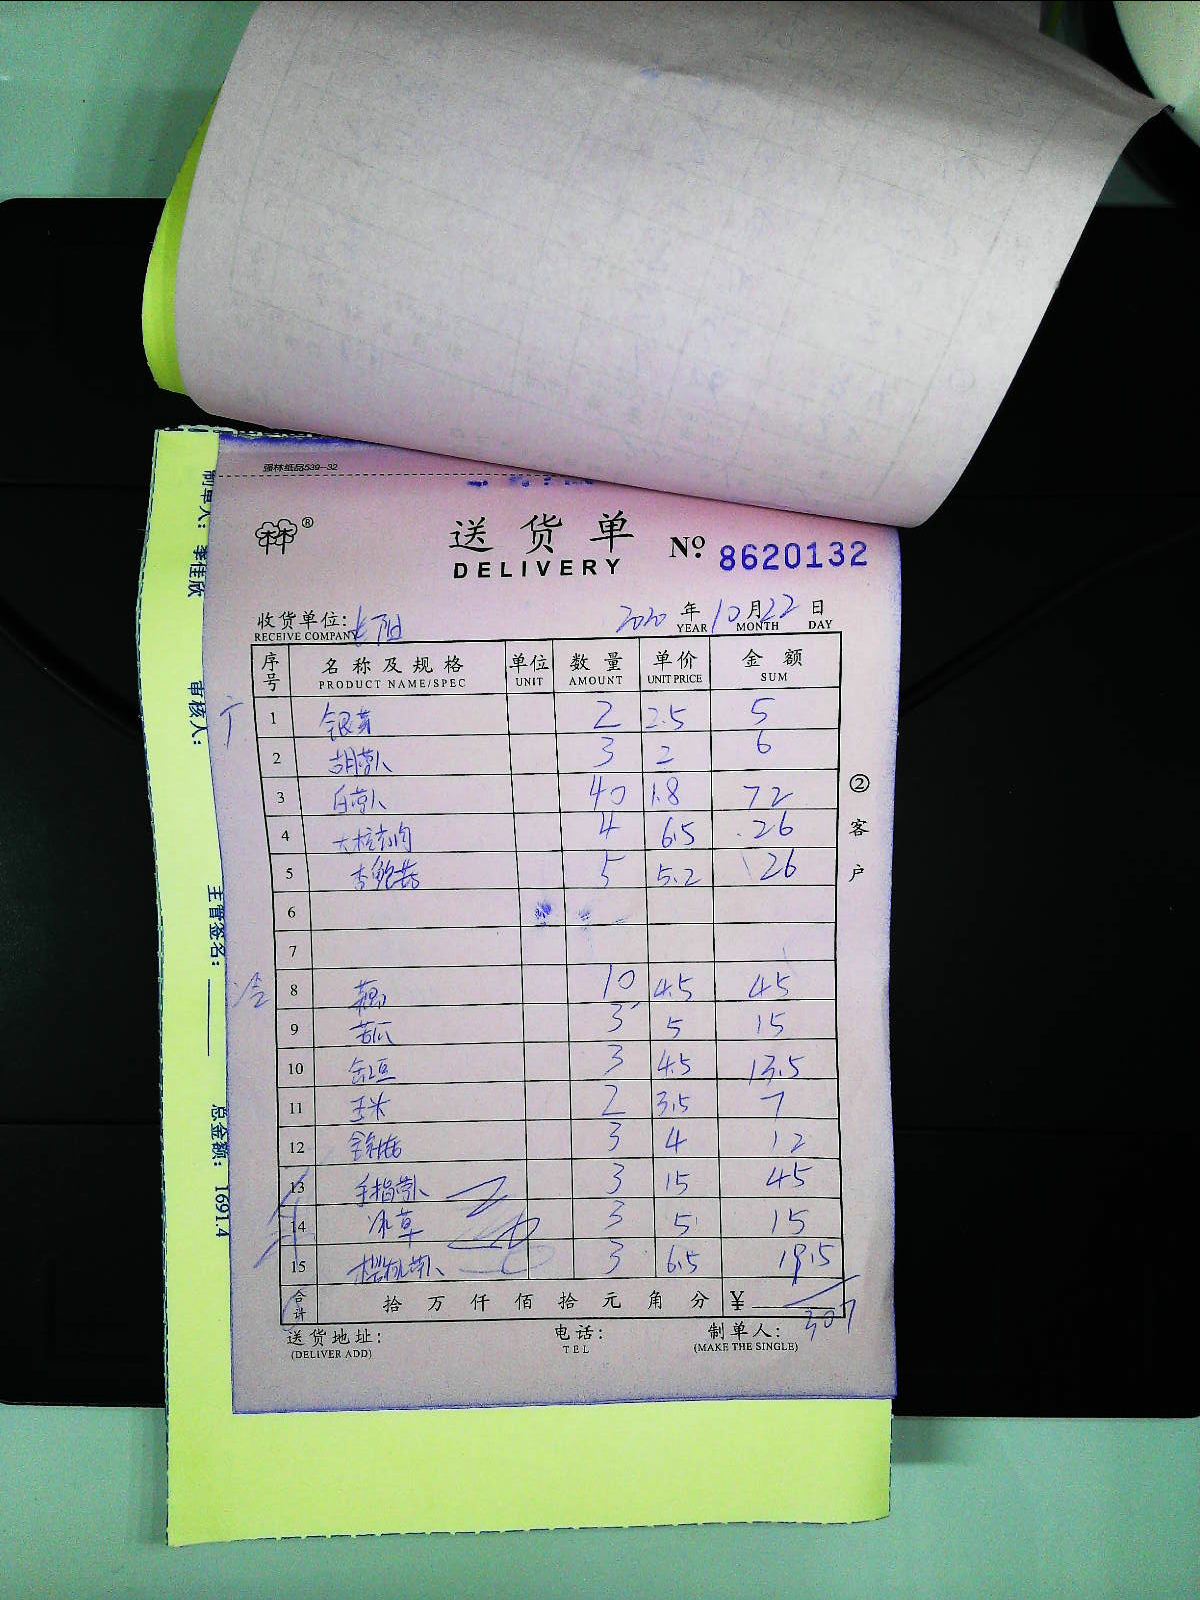 强林纸品539-32
®
送货单
DELIVERY
No. 8620132
收货单位: 长阳
RECEIVE COMPANY
2020 年 10 月 22 日
YEAR MONTH DAY
序号 名称及规格 单位 数量 单价 金额
PRODUCT NAME/SPEC UNIT AMOUNT UNIT PRICE SUM
1 银芽 2 2.5 5
2 胡萝卜 3 2 6
3 白萝卜 40 1.8 72
4 4 6.5 26
5 杏鲍菇 5 5.2 26
6
7
8 藕 10 4.5 45
9 苦瓜 3 5 15
10 缸豆 3 4.5 13.5
11 玉米 2 3.5 7
12 金针菇 3 4 12
13 手指萝卜 3 15 45
14 冰草 3 5 15
15 樱桃萝卜 3 6.5 19.5
合计 拾 万 仟 佰 拾 元 角 分 ¥ 307
送货地址:
(DELIVER ADD)
电话:
TEL
制单人:
(MAKE THE SINGLE)
②客户
制单人: 李佳欣
审核人:
主管签名:
总金额: 1691.4